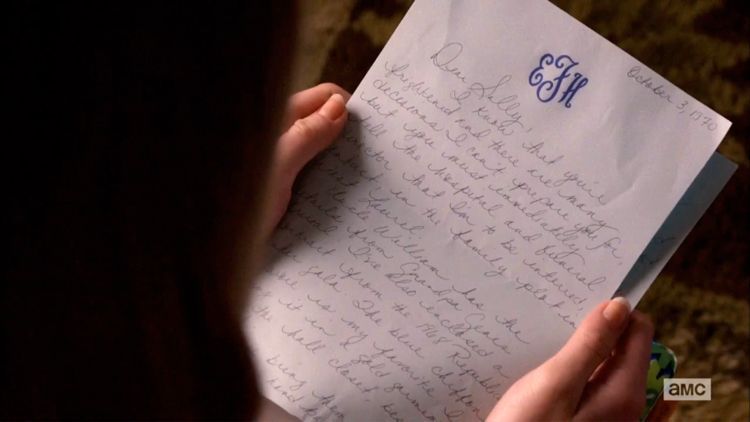 EFH
October 3, 1970
Dear Sally,
I know that you're
frightened and there are many
decisions I can't prepare you for
but you must immediately
tell the hospital and funeral
that I'm to be interred
in the family plot in
William has the
from Grandpa Gene's
I've also enclosed a
from the 1968 Republic
gala The blue chiffon
is my favorite
it in a gold
the hall closet,
bring
amc